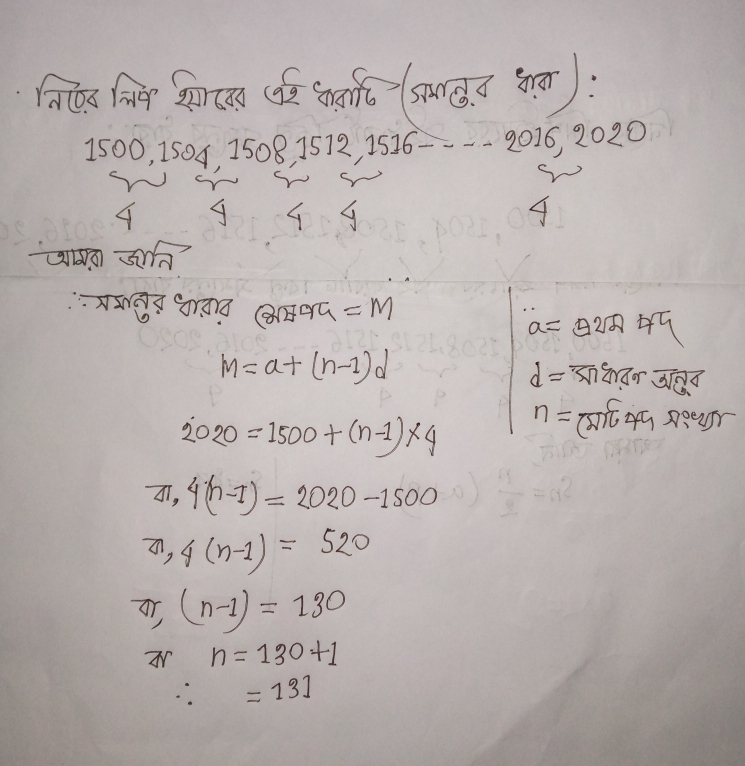 নিচের লিপ ইয়ারের এই ধারাটি (সমান্তর ধারা):
1500, 1504, 1508, 1512, 1516---- 2016, 2020
4 4 4 4 4
আমরা জানি
∴ সমান্তর ধারার শেষপদ = M
M = a + (n-1)d
2020 = 1500 + (n-1)×4
বা, 4(n-1) = 2020 - 1500
বা, 4(n-1) = 520
বা, (n-1) = 130
বা n = 130+1
∴ = 131
a = প্রথম পদ
d = সাধারণ অন্তর
n = মোট পদ সংখ্যা